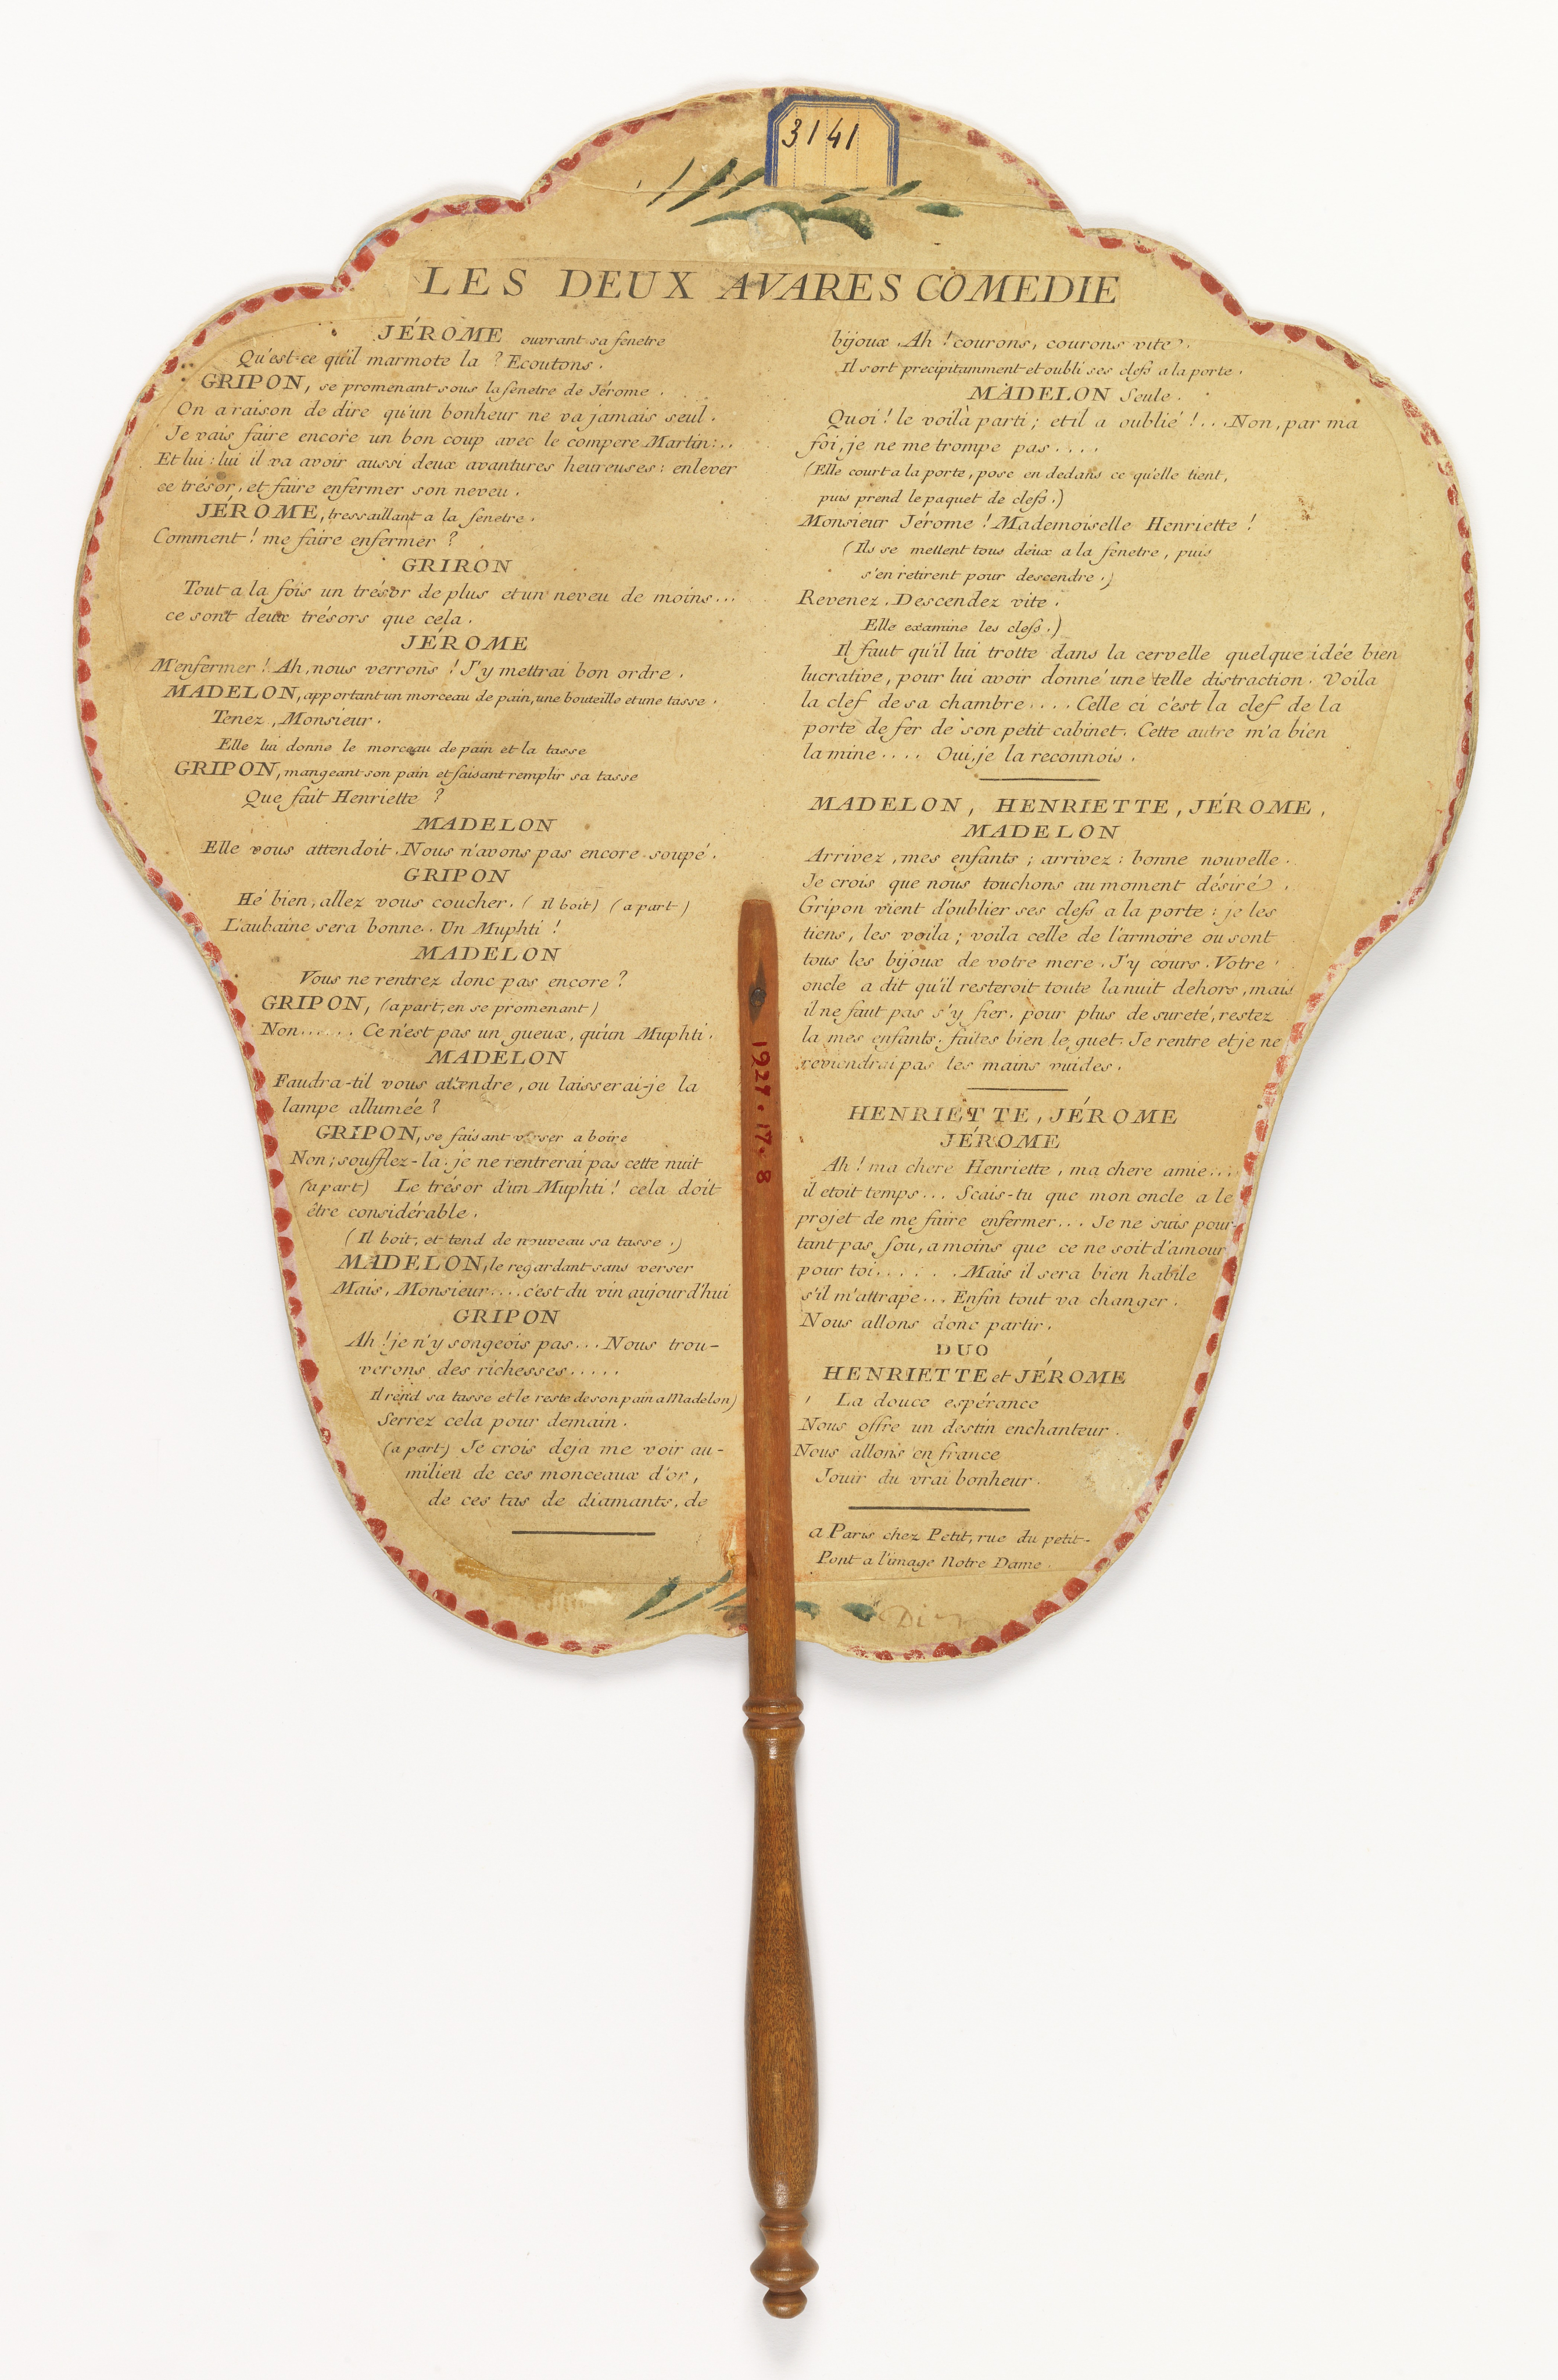 3141
LES DEUX AVARES COMEDIE
JÉROME ouvrant sa fenetre
Qu'est-ce qu'il marmote la ? Ecoutons.
GRIPON, se promenant sous la fenetre de Jérome.
On a raison de dire qu'un bonheur ne va jamais seul.
Je vais faire encore un bon coup avec le compere Martin...
Et lui: lui il va avoir aussi deux avantures heureuses: enlever
ce trésor, et faire enfermer son neveu.
JÉROME, tressaillant a la fenetre.
Comment! me faire enfermer ?
GRIRON
Tout a la fois un trésor de plus et un neveu de moins...
ce sont deux trésors que cela.
JÉROME
M'enfermer! Ah, nous verrons! J'y mettrai bon ordre.
MADELON, apportant un morceau de pain, une bouteille et une tasse.
Tenez, Monsieur.
Elle lui donne le morceau de pain et la tasse
GRIPON, mangeant son pain et faisant remplir sa tasse
Que fait Henriette ?
MADELON
Elle vous attendoit. Nous n'avons pas encore soupé.
GRIPON
Hé bien, allez vous coucher. (Il boit) (a part)
L'aubaine sera bonne.. Un Muphti !
MADELON
Vous ne rentrez donc pas encore ?
GRIPON, (a part, en se promenant)
Non...... Ce n'est pas un gueux, qu'un Muphti.
MADELON
Faudra-til vous attendre, ou laisserai-je la
lampe allumée ?
GRIPON, se faisant verser a boire
Non; soufflez-la: je ne rentrerai pas cette nuit
(a part) Le trésor d'un Muphti! cela doit
être considérable.
(Il boit, et tend de nouveau sa tasse.)
MADELON, le regardant sans verser
Mais, Monsieur.... c'est du vin aujourd'hui
GRIPON
Ah! je n'y songeois pas... Nous trou-
verons des richesses.....
Il rend sa tasse et le reste de son pain a Madelon)
Serrez cela pour demain.
(a part) Je crois deja me voir au-
milieu de ces monceaux d'or,
de ces tas de diamants, de
bijoux. Ah! courons, courons vite.
Il sort precipitamment et oubli ses clefs a la porte.
MADELON Seule.
Quoi! le voilà parti; et il a oublié!... Non, par ma
foi, je ne me trompe pas....
(Elle court a la porte, pose en dedans ce qu'elle tient,
puis prend le paquet de clefs.)
Monsieur Jérome! Mademoiselle Henriette !
(Ils se mettent tous deux a la fenetre, puis
s'en retirent pour descendre.)
Revenez. Descendez vite.
Elle examine les clefs.)
Il faut qu'il lui trotte dans la cervelle quelque idée bien
lucrative, pour lui avoir donné une telle distraction. Voila
la clef de sa chambre.... Celle ci c'est la clef de la
porte de fer de son petit cabinet. Cette autre m'a bien
la mine.... Oui, je la reconnois.
MADELON, HENRIETTE, JÉROME,
MADELON
Arrivez, mes enfants; arrivez: bonne nouvelle.
Je crois que nous touchons au moment désiré.
Gripon vient d'oublier ses clefs a la porte: je les
tiens, les voila; voila celle de l'armoire ou sont
tous les bijoux de votre mere. J'y cours. Votre
oncle a dit qu'il resteroit toute la nuit dehors, mais
il ne faut pas s'y fier. pour plus de sureté, restez
la mes enfants. faites bien le guet. Je rentre et je ne
reviendrai pas les mains vuides.
HENRIETTE, JÉROME
JÉROME
Ah! ma chere Henriette, ma chere amie...
il etoit temps... Scais-tu que mon oncle a le
projet de me faire enfermer... Je ne suis pour-
tant pas fou, a moins que ce ne soit d'amour
pour toi...... Mais il sera bien habile
s'il m'attrape... Enfin tout va changer.
Nous allons donc partir.
DUO
HENRIETTE et JÉROME
La douce espérance
Nous offre un destin enchanteur.
Nous allons en france
Jouir du vrai bonheur.
a Paris chez Petit, rue du petit-
Pont a l'image Notre Dame.
1927.17.8